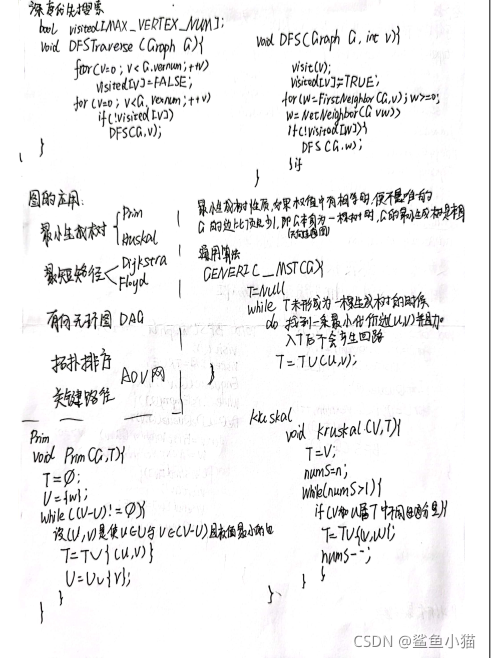 深度优先搜索
bool visited[MAX_VERTEX_NUM];
void DFSTraverse (Graph G){
for(v=0; v<G.vexnum; ++v)
visited[v]=FALSE;
for(v=0; v<G.vexnum; ++v)
if(!visited[v])
DFS(G,v);
}
void DFS(Graph G, int v){
visit(v);
visited[v]=TRUE;
for(w=FirstNeighbor(G,v); w>=0;
w=NetNeighbor(G vw))
if(!visited[w]){
DFS(G,w);
}if
}
图的应用:
最小生成树
Prim
Kruskal
最短路径
Dijkstra
Floyd
有向无环图 DAG
拓扑排序
关键路径
AOV网
最小生成树性质,如果权值中有相等的,便不是唯一的
G的边比顶点少1,即G本身为一棵树时,G的最小生成树是本身
通用算法
GENERIC_MST(G){
T=Null
while T未形成为一棵生成树的时候
do 找到一条最小代价边(u,v)并且加
入T后不会产生回路
T=TU(u,v);
}
Prim
void Prim(G,T){
T=Ø;
U={w};
while((V-U)!=Ø){
设(u,v)是使u∈U与v∈(V-U)且权值最小的边
T=TU{(u,v)}
U=UU{v};
}
}
Kruskal
void Kruskal(V,T){
T=V;
numS=n;
while(numS>1){
if(V和U属T中不同的连通分量){
T=TU{(v,u)};
numS--;
}
}
}
CSDN @鲨鱼小猫